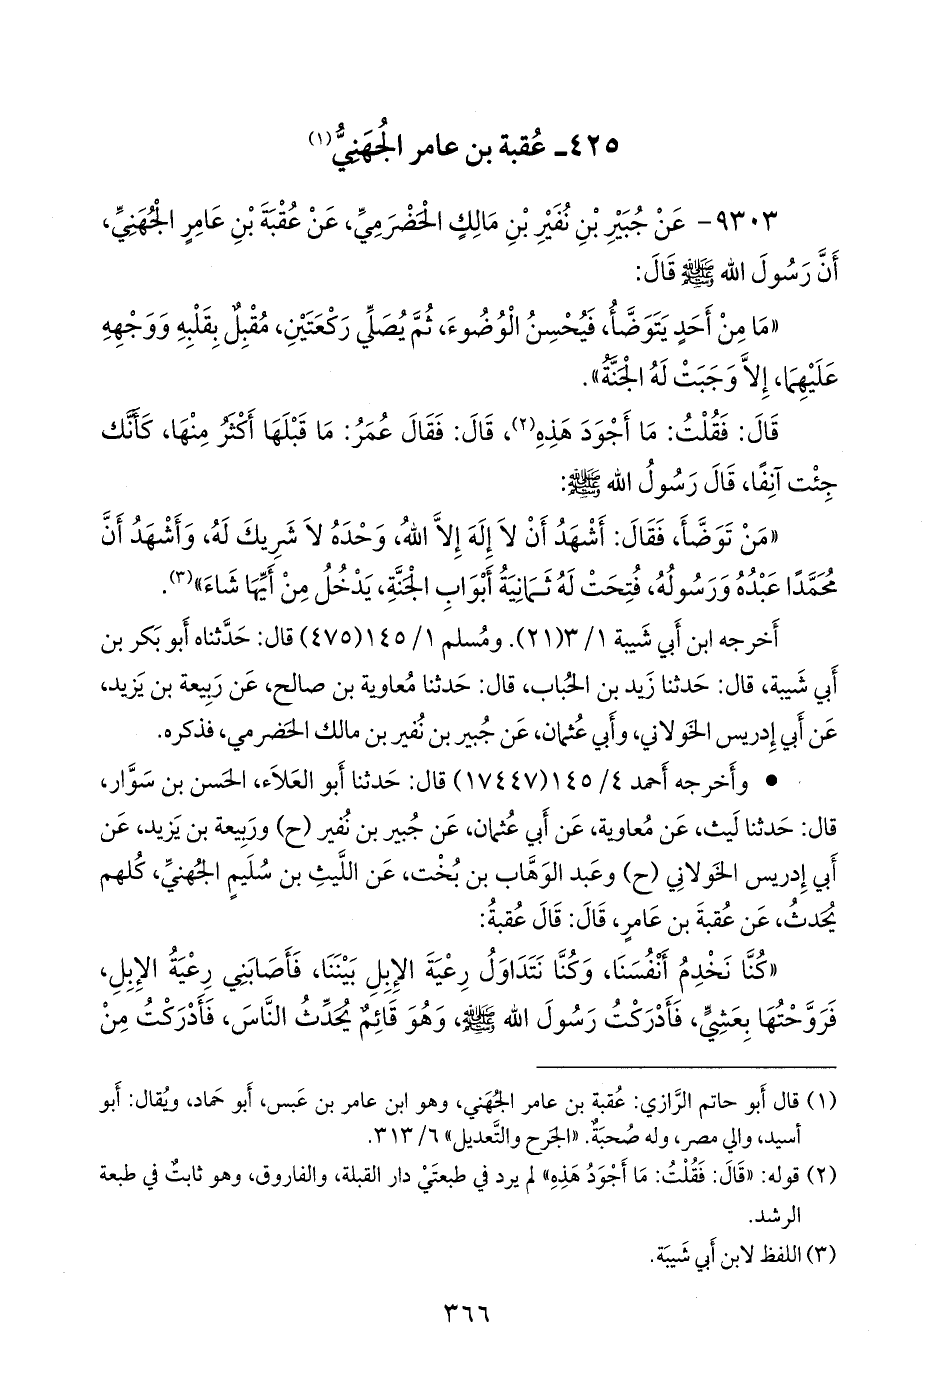 ٤٢٥ـ عُقبة بن عامر الجُهَنِيُّ(١)
٩٣٠٣- عَنْ جُبَيْرِ بْنِ نُفَيْرِ بْنِ مَالِكٍ الْحَضْرَمِيِّ، عَنْ عُقْبَةَ بْنِ عَامِرٍ الْجُهَنِيِّ،
أَنَّ رَسُولَ الله ﷺ قَالَ:
«مَا مِنْ أَحَدٍ يَتَوَضَّأُ، فَيُحْسِنُ الْوُضُوءَ، ثُمَّ يُصَلِّي رَكْعَتَيْنِ، مُقْبِلٌ بِقَلْبِهِ وَوَجْهِهِ
عَلَيْهِمَا، إِلاَّ وَجَبَتْ لَهُ الْجَنَّةُ».
قَالَ: فَقُلْتُ: مَا أَجْوَدَ هَذِهِ(٢)، قَالَ: فَقَالَ عُمَرُ: مَا قَبْلَهَا أَكْثَرُ مِنْهَا، كَأَنَّك
جِئْت آنِفًا، قَالَ رَسُولُ الله ﷺ:
«مَنْ تَوَضَّأَ، فَقَالَ: أَشْهَدُ أَنْ لاَ إِلَهَ إِلاَّ اللهُ، وَحْدَهُ لاَ شَرِيكَ لَهُ، وَأَشْهَدُ أَنَّ
مُحَمَّدًا عَبْدُهُ وَرَسُولُهُ، فُتِحَتْ لَهُ ثَمَانِيَةُ أَبْوَابِ الْجَنَّةِ، يَدْخُلُ مِنْ أَيِّهَا شَاءَ»(٣).
أَخرجه ابن أَبي شَيبة ١/ ٣(٢١). ومُسلم ١/ ١٤٥(٤٧٥) قال: حَدَّثناه أَبو بَكر بن
أَبي شَيبة، قال: حَدثنا زَيد بن الحُباب، قال: حَدثنا مُعاوية بن صالح، عَن رَبيعة بن يَزيد،
عَن أَبي إِدريس الخَولاني، وأَبي عُثمان، عَن جُبير بن نُفير بن مالك الحَضرمي، فذكره.
• وأَخرجه أَحمد ٤/ ١٤٥(١٧٤٤٧) قال: حَدثنا أَبو العَلاَء، الحَسن بن سَوَّار،
قال: حَدثنا لَيث، عَن مُعاوية، عَن أَبي عُثمان، عَن جُبير بن نُفير (ح) ورَبيعة بن يَزيد، عَن
أَبي إِدريس الخَولاني (ح) وعَبد الوَهَّاب بن بُخْت، عَن اللَّيثِ بن سُليمٍ الجُهنيِّ، كُلهم
يُحَدثُ، عَن عُقبةَ بن عَامرٍ، قَالَ: قَالَ عُقبةُ:
«كُنَّا نَخْدِمُ أَنْفُسَنَا، وَكُنَّا نَتَدَاوَلُ رِعْيَةَ الإِبِلِ بَيْنَنَا، فَأَصَابَنِي رِعْيَةُ الإِبِلِ،
فَرَوَّحْتُهَا بِعَشِيٍّ، فَأَدْرَكْتُ رَسُولَ الله ﷺ، وَهُوَ قَائِمٌ يُحَدِّثُ النَّاسَ، فَأَدْرَكْتُ مِنْ
(١) قال أَبو حاتم الرَّازي: عُقبة بن عامر الجُهَني، وهو ابن عامر بن عَبس، أَبو حَماد، ويُقال: أَبو
أسيد، والي مصر، وله صُحبَةٌ. «الجَرح والتَّعديل» ٦/ ٣١٣.
(٢) قوله: «قَالَ: فَقُلْتُ: مَا أَجْوَدُ هَذِهِ» لم يرد في طبعتَيْ دار القبلة، والفاروق، وهو ثابتٌ في طبعة
الرشد.
(٣) اللفظ لابن أَبي شَيبَة.
٣٦٦